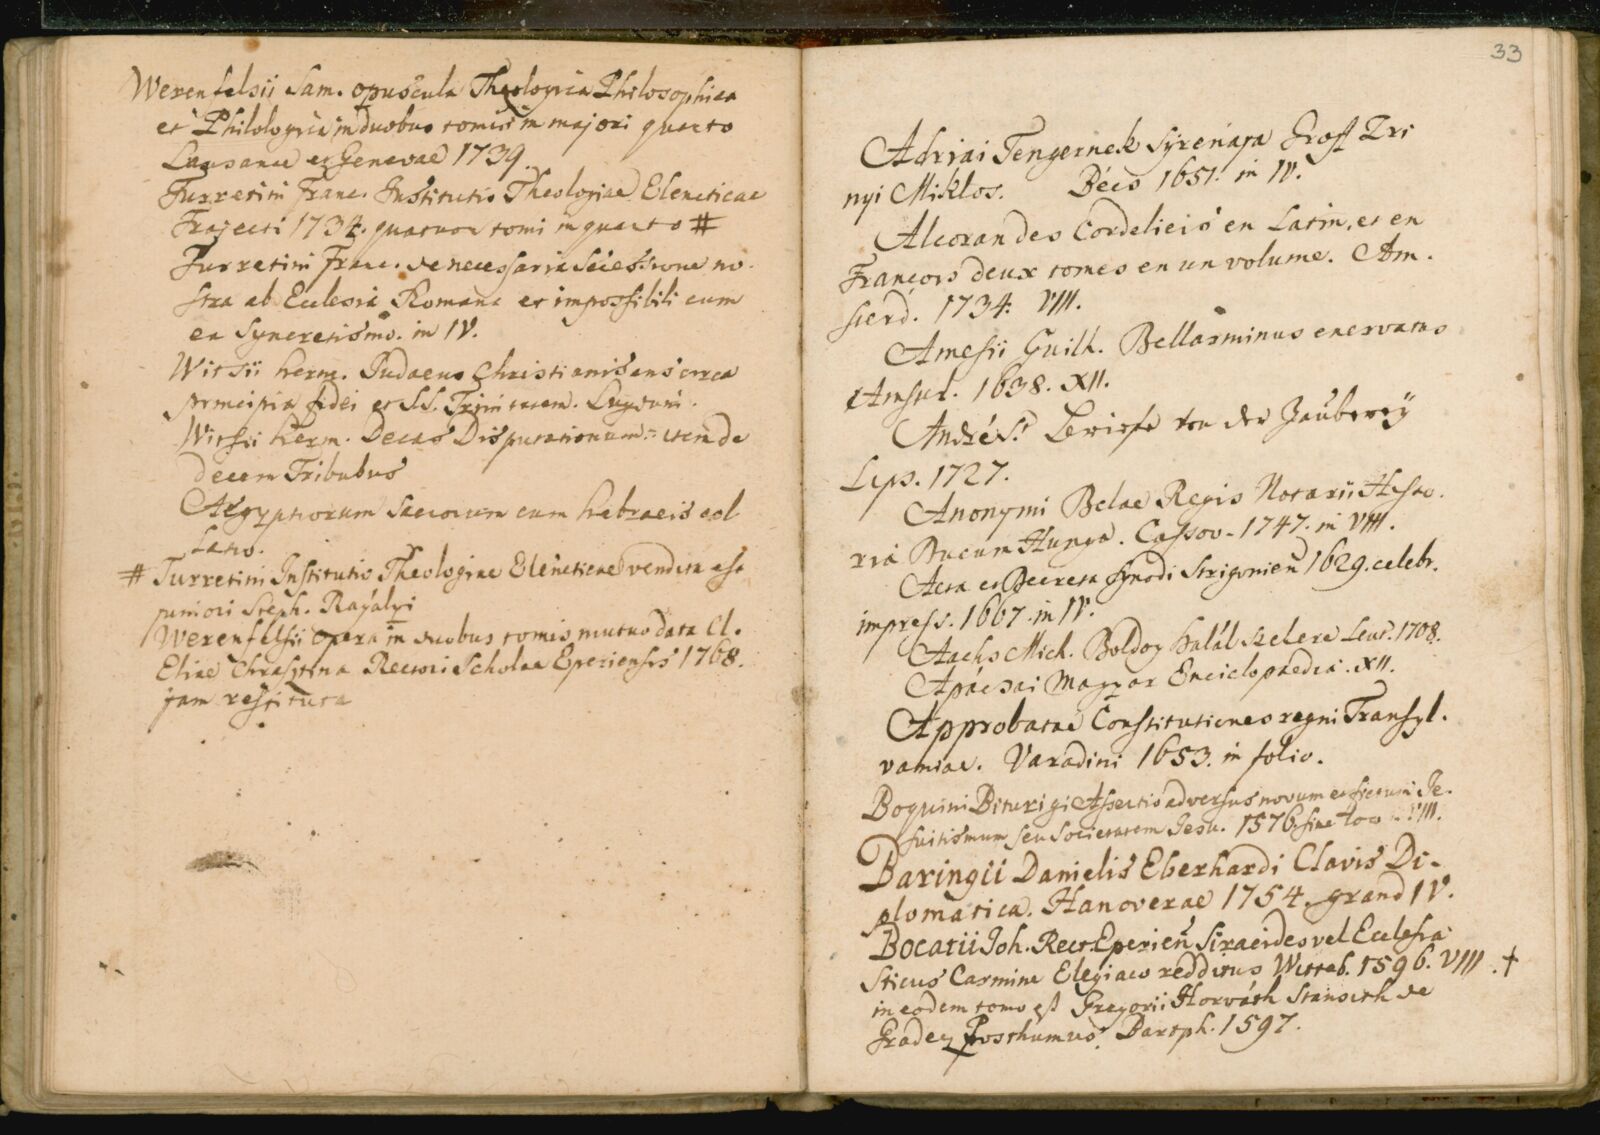 Werenfelsii Sam. opuscula Theologica Philosophica
et Philologica in duobus tomis in majori quarto
Lausanae et Genevae 1739.
Turretini Franc. Institutio Theologiae Elencticae
Trajecti 1734. quatuor tomi in quarto #
Turretini Franc. de necessaria Secessione no-
stra ab Ecclesia Romana et impossibili cum
ea Syncretismo. in IV.
Witsii Herm. Judaeus Christianisans circa
principia fidei et S.S. Trinitatem. Lugduni.
Witsii Herm. Decas Disputationum = item de
decem Tribubus
Aegyptiorum Sacrorum cum Hebraeis col
latio.
# Turretini Institutio Theologiae Elencticae vendita est
juniori Steph. Ragályi
Werenfelsii opera in duobus tomis mutuo data Cl.
Eliae Chrasztina Rectori Scholae Eperiensis 1768.
jam restituta
33
Adriai Tengernek Syrenaja Groff Zri
nyi Miklos. Bécs 1651. in IV.
Alcoran des Cordeliers en Latin, et en
François deux tomes en un volume. Am.
sterd. 1734. VIII.
Amesii Guilh. Bellarminus enervatus
Amstel. 1638. XII.
André S. Briefe von der Zauberey
Lips. 1727.
Anonymi Belae Regis Notarii Histo.
ria Ducum Hunga. Cassov. 1747. in VIII.
Acta et Decreta Synodi Strigonien 1629. celebr.
impress. 1667. in IV.
Aachs Mich. Boldog halál szekere Leuts. 1708.
Apáczai Magyar Enciclopaedia. XII.
Approbatae Constitutiones regni Transyl.
vaniae. Varadini 1653. in folio.
Boquini Biturigi Assertio adversus novum et fictum Je.
suitismum seu Societatem Jesu. 1576. sine loco. VIII.
Baringii Danielis Eberhardi Clavis Di-
plomatica. Hanoverae 1754. grand IV.
Bocatii Joh. Rect. Eperien Siracides vel Ecclesia
sticus Carmine Elegiaco redditus Witteb. 1596. VIII. †
in eodem tomo est Gregorii Horváth Stansith de
Gradecz Posthumus. Bartph. 1597.